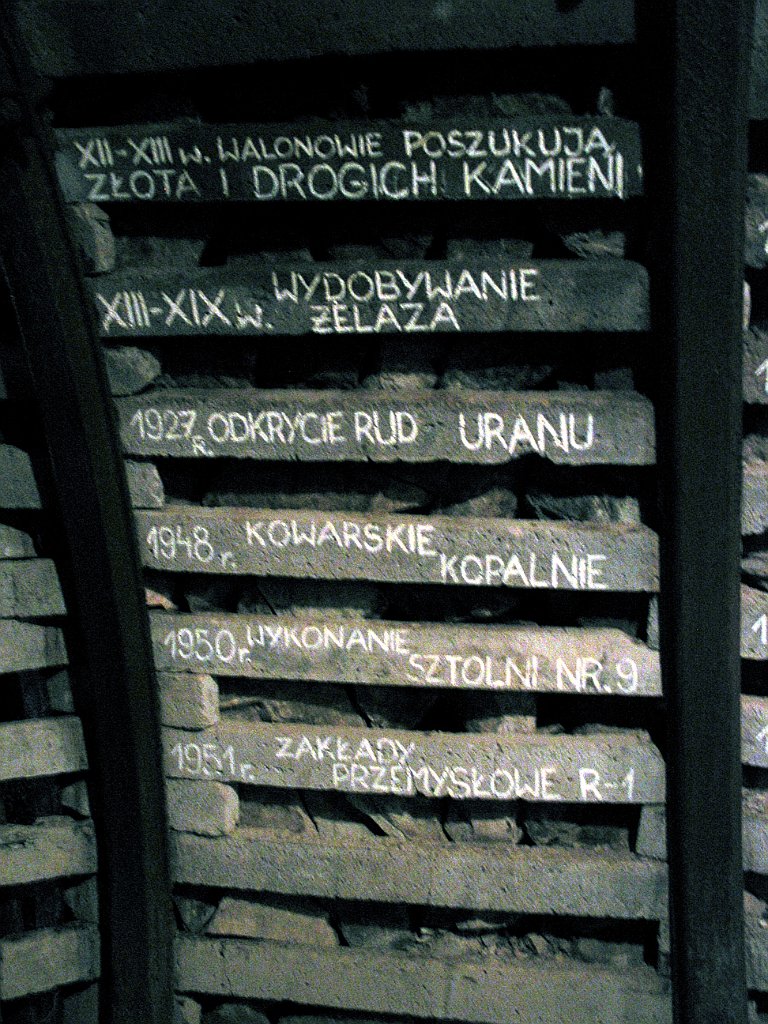 XII-XIII w. WALONOWIE POSZUKUJĄ
ZŁOTA I DROGICH KAMIENI
XIII-XIX w. WYDOBYWANIE
ŻELAZA
1927 R. ODKRYCIE RUD URANU
1948 r. KOWARSKIE
KOPALNIE
1950 r. WYKONANIE
SZTOLNI NR. 9
1951 r. ZAKŁADY
PRZEMYSŁOWE R-1